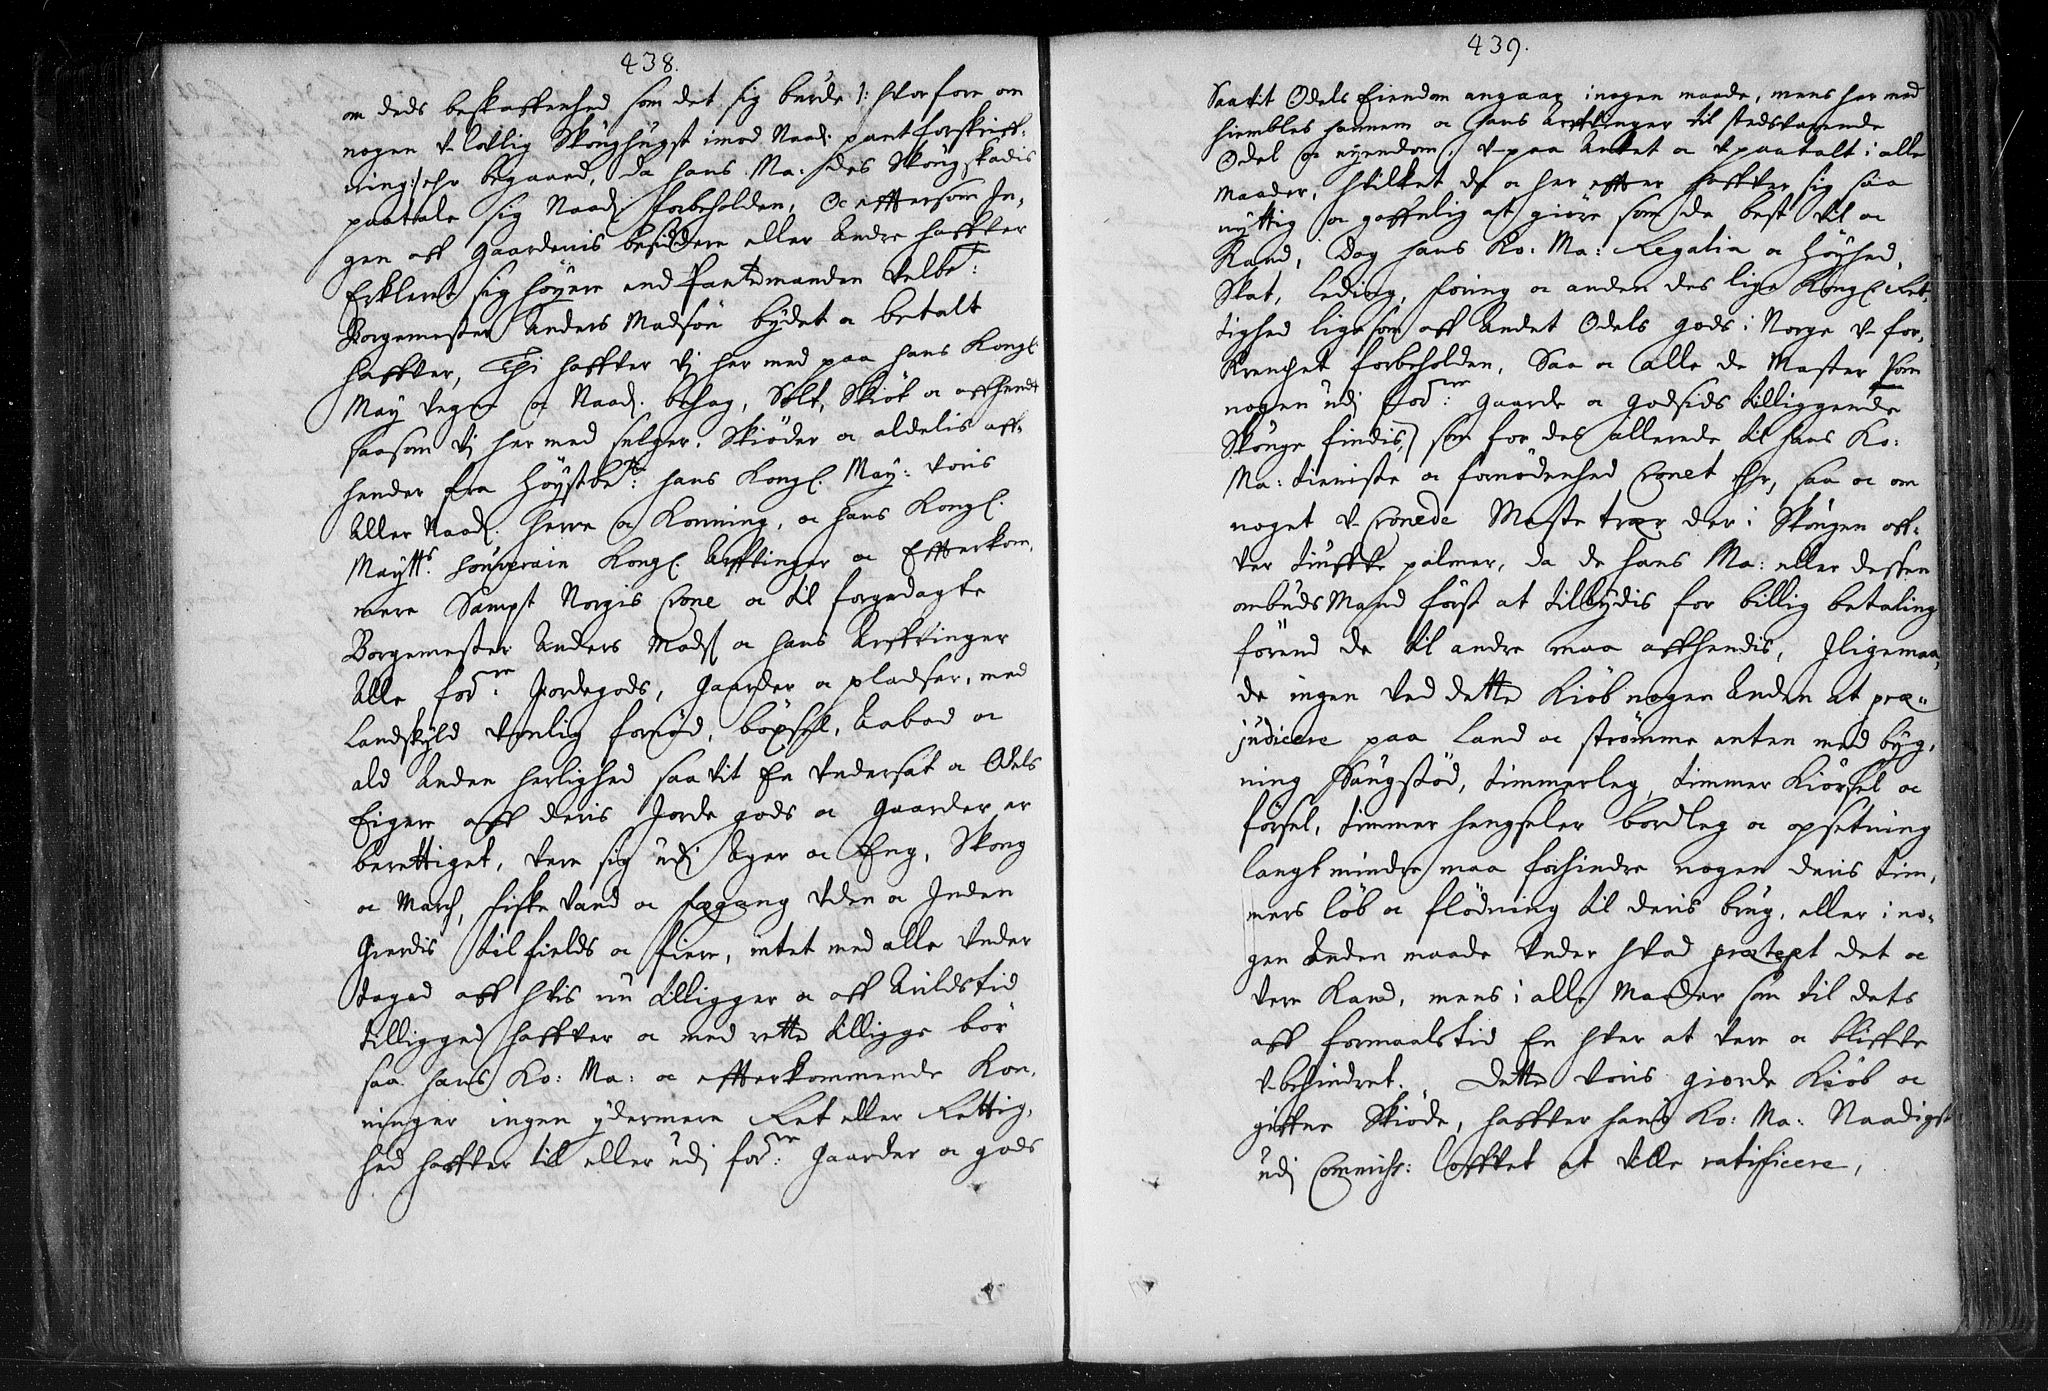 438.
om deds beskaffenhed som det sig burde /: hvorfore om
nogen u-lovlig Skoughugst imod Naad. pant forskriff-
ning :/ ehr begaaed, da hans Ma: des Skougskadis
paatale sig Naad. forbeholden, Oc effttersom In-
gen aff Gaardenis besiddere eller Andre haffver
Erkleret sig høyere end Pantemanden velbe:te
Borgemester Anders Madsøn bydet oc betalt
haffver, Thi haffver vj her med paa hans Kongl.
May vegne oc Naad. behag, Solt, Skiøt oc affhendt
saasom vj her med selger, Skiøder oc aldelis aff-
hender fra Høystbe:te hans Kongl. May: voris
Aller Naad. Herre oc Konning, oc hans Kongl.
Maytts. souverain Kongl. Arffvinger oc Effterkom-
mere Sampt Norgis Crone oc til forgedagte
Borgemester Anders Mads. oc hans Arffvinger
Alle for:ne Jordegods, Gaarder oc pladser, med
Landskyld venlig foring, bøxsel, Aabod oc
ald Anden herlighed saavit En undersat oc Odels
Eigere aff deris Jorde gods oc Gaarder er
berettiget, vere sig udj Ager oc Eng, Skoug
oc March, fiske vand oc fægang uden oc Inden
Gierdis til fields oc fiere, intet med alle under
taged aff hvis nu tilligger oc aff Arildstid
tilligged haffver oc med rette tilligge bør
saa hans Ko: Ma: oc effterkommende Kon-
ninger ingen ydermere Ret eller Rettig-
hed haffver til eller udj for:ne Gaarder oc gods
439.
Saavit Odels Eiendom angaar i nogen maade, mens her med
hiembles hannem oc hans Arffvinger til stedsvarende
Odel oc eyendom, u-paa Anket oc u-paatalt i alle
maader, hvilket de oc her effter haffver sig saa
nyttig oc gaffnlig at giøre som de best vil oc
Kand, Dog hans Ko: Ma: Regalia oc Høyhed,
Skat, Leding, foring oc anden des lige Kongl. Ret-
tighed ligesom aff Andet Odels gods i Norge u-for-
krenchet forbeholden, Saa oc alle de Master som
nogen udj for:ne Gaarde oc godsids tilliggende
Skouge findis, som for des allerede til hans Ko:
Ma: tieniste oc fornødenhed Cronet ehr, saa oc om
noget u-Cronede Maste træer der i Skougen off-
ver tiuffve palmer, da de hans Ma: eller dessen
ombuds Mand først at tilbydis for billig betaling
førend de til andre maa affhendis, Iligemaa-
de ingen ved dette Kiøb nogen Anden at præ-
judicere paa Land oc strømme enten med byg-
ning Saugstød, timmerleg, timmer Kiørsel oc
førsel, timmer hengseler bordleg oc opsetning
langt mindre maa forhindre nogen deris tim-
mers løb oc flødning til deris brug, eller i no-
gen Anden maade under hvad prætext det oc
vere Kand, mens i alle Maader som til dets
aff formaalstid En hver at vere oc bliffve
u-behindret. Dette voris giorde Kiøb oc
giffne Skiøde, haffver hans Ko: Ma: Naadigst
udj Commiss: loffvet at ville ratificere,